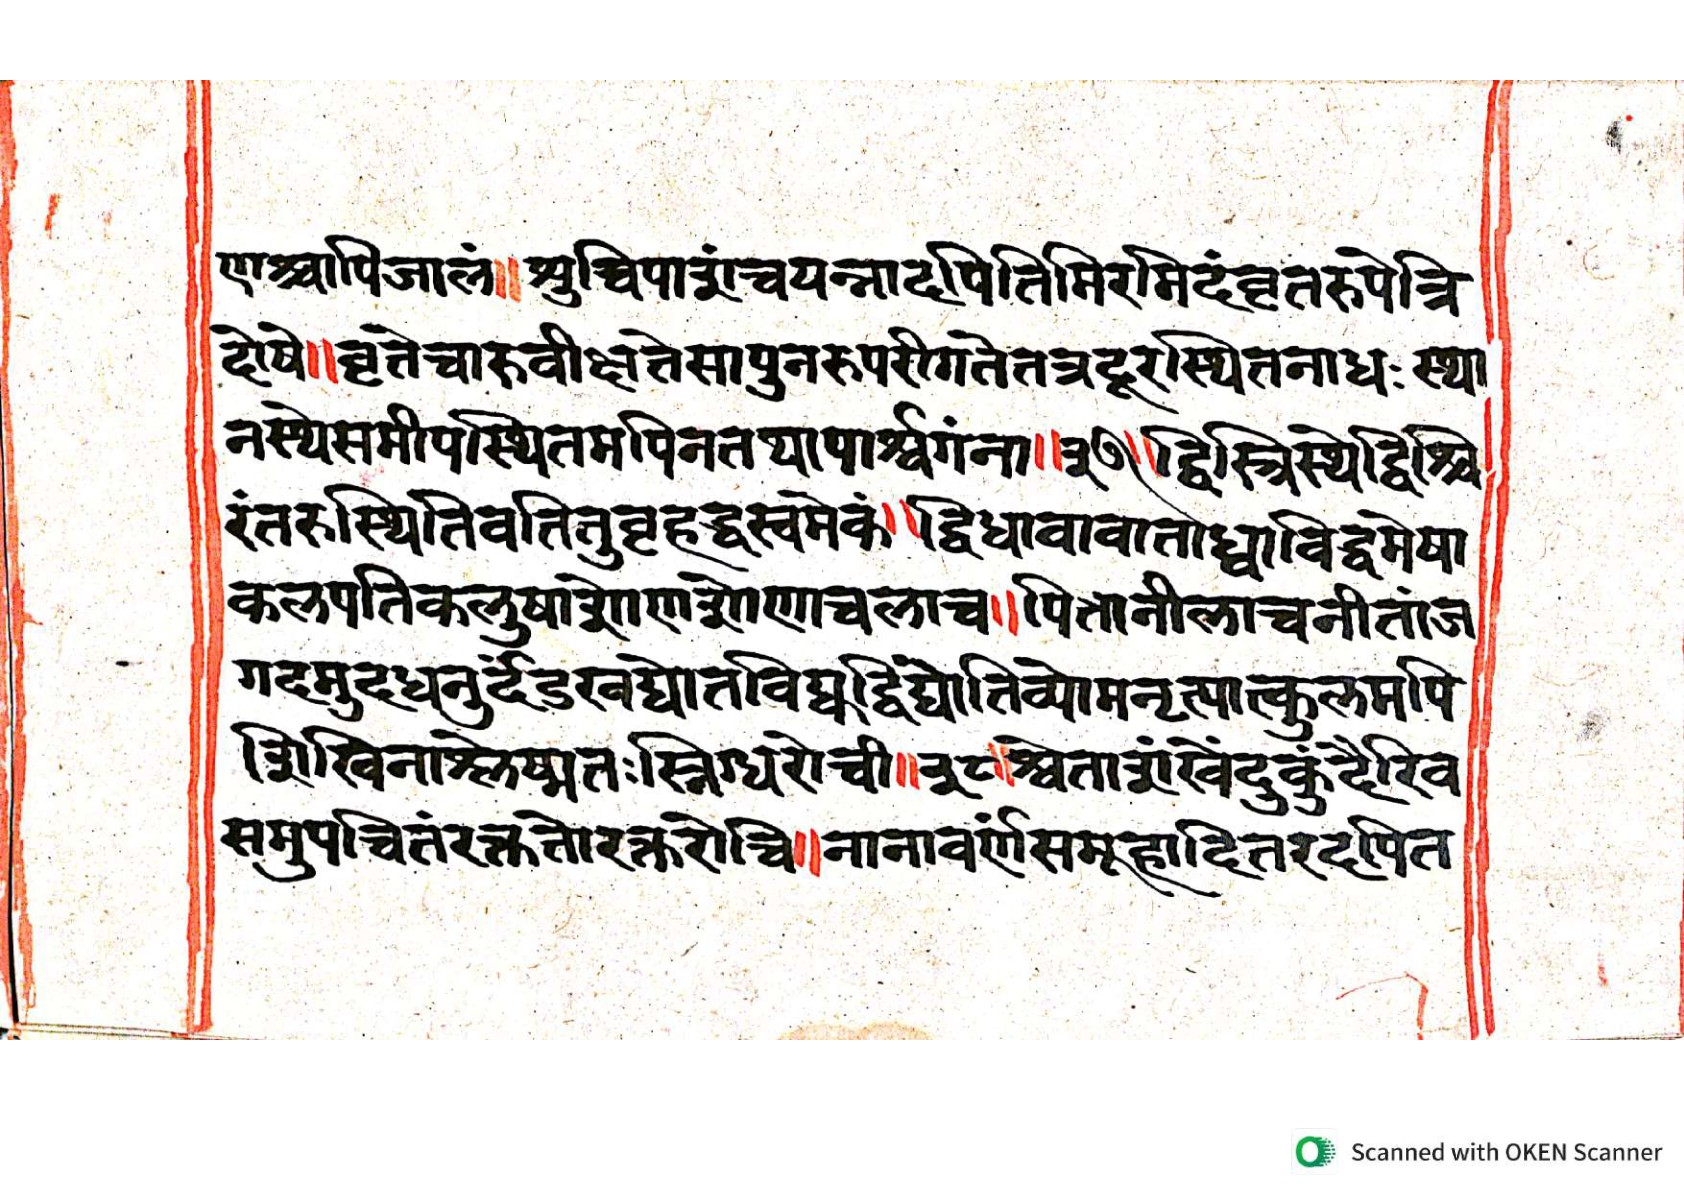 णश्चापिजालं॥श्रुचिपाशंचयन्नादपितिमिरमिदंवृतरुपेत्रि
दोषे॥वृतेचारुवीक्षतेसापुनरुपरीगतेतत्रदूरस्थितनाधःस्था
नस्थेसमीपस्थितमपिनतथापार्श्वगंना॥३७॥द्विस्त्रिस्थेद्विश्चि
रंतरुस्थितिवतितुवृहद्ध्रस्वमेकं॥द्विधावावाताध्वाविद्धमेषा
कलपतिकलुषाशोणशेणाचलाच॥पितानीलाचनीतांज
गदमुदधनुर्दंडखद्योतविद्युद्विंद्योतिव्योमनृत्पात्कुलमपि
शिखिनाश्लेष्मतःस्निग्धरोची॥३८॥श्वेताशंखेंदुकुंदैरिव
समुपचितंरक्ततोरक्तरोचि॥नानावर्णसमूहादितरदपित
Scanned with OKEN Scanner